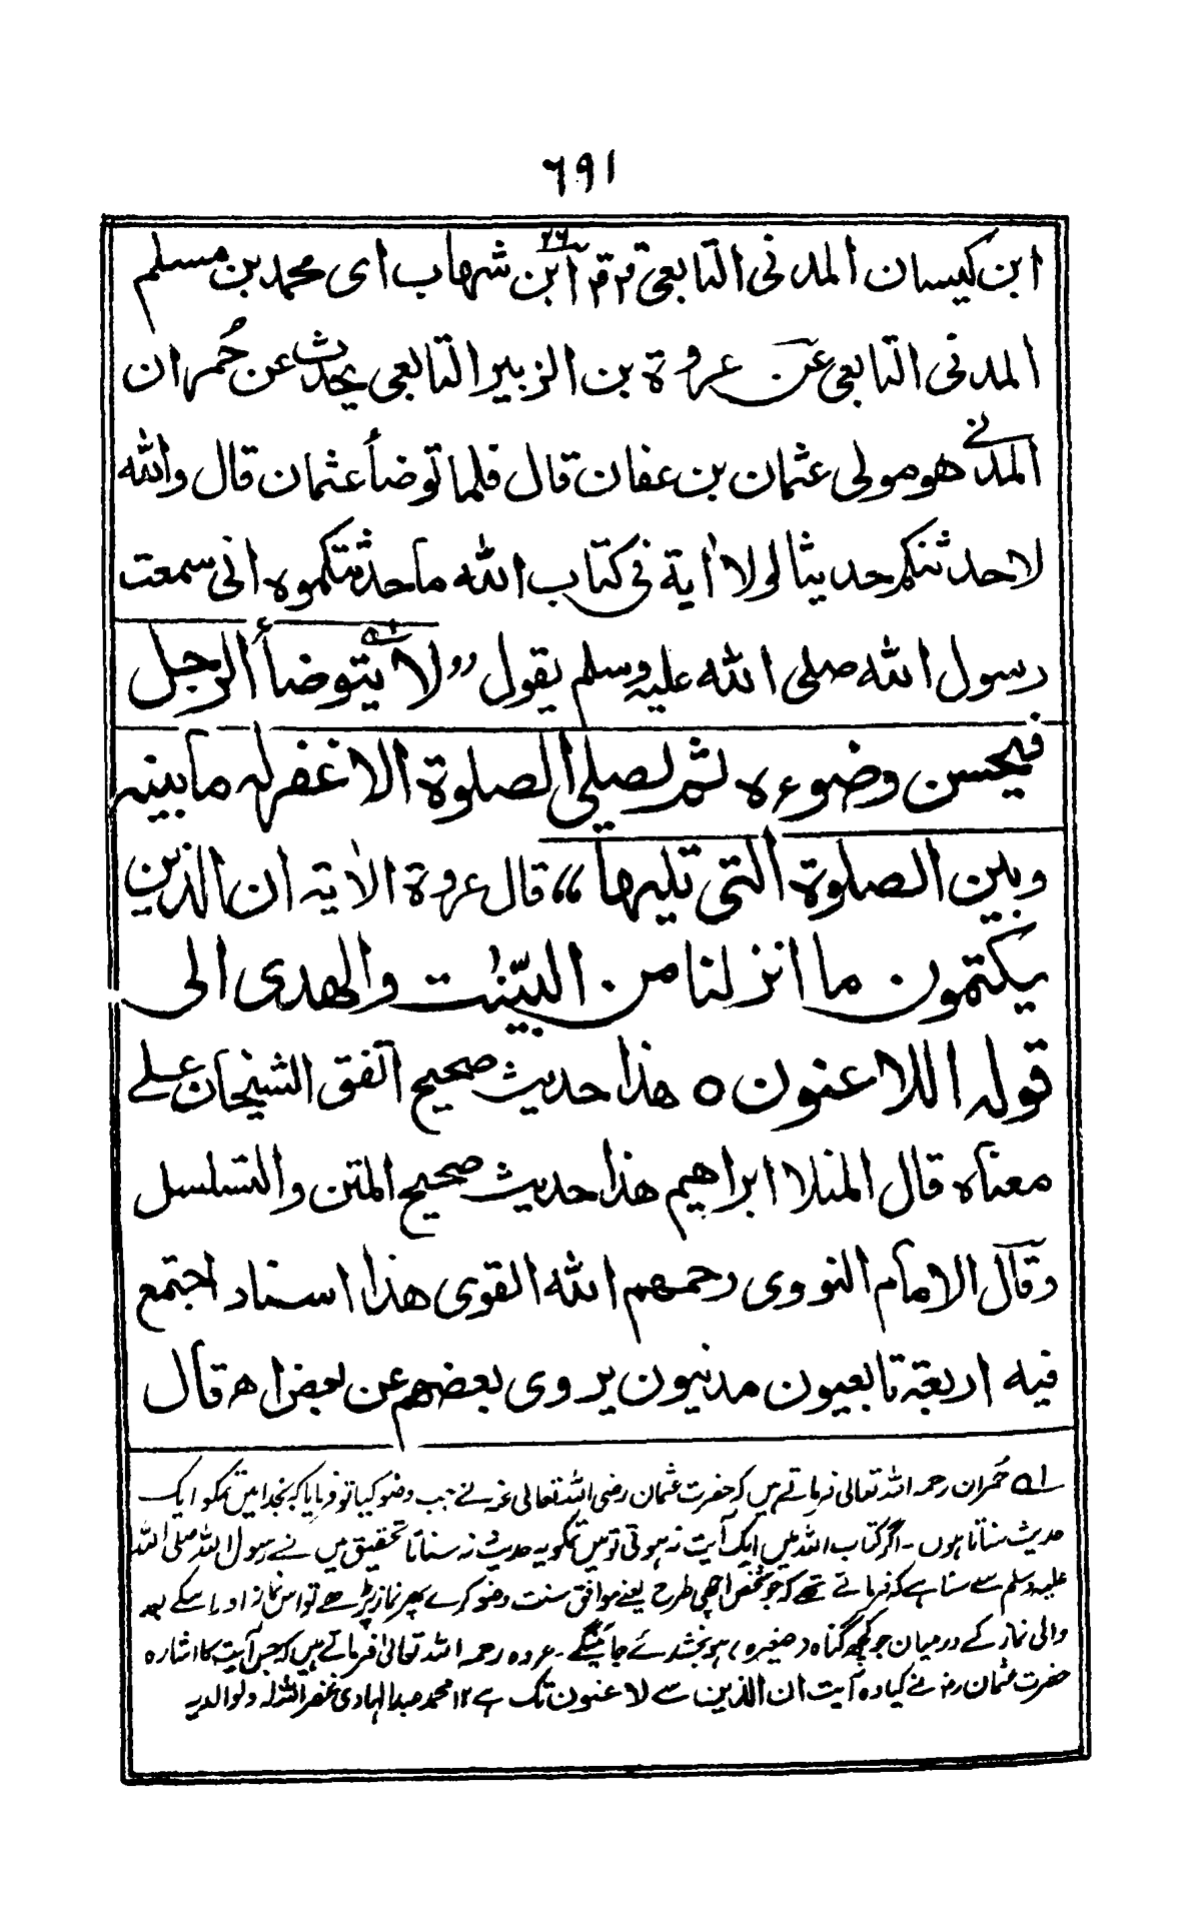 ٦٩١
ابن كيسان المدنى التابعى ابن شهاب اى محمد بن مسلم
المدنى التابعى عن عروة بن الزبير التابعى يحدث عن حُمران
المدنى هو مولى عثمان بن عفان قال فلما توضأ عثمان قال والله
لاحدثنكم حديثا لولا أية فى كتاب الله ما حدثتكموه انى سمعت
رسول الله صلى الله عليه وسلم يقول ,,لا يتوضأ الرجل
فيحسن وضوءه ثم يصلى الصلوة الا غفر له ما بينه
وبين الصلوة التى تليها،، قال عروة الأية ان الذين
يكتمون ما انزلنا من البيّنٰت والهدى الى
قوله اللاعنون ○ هذا حديث صحيح اتفق الشيخان على
معناه قال المنلا ابراهيم هذا حديث صحيح المتن والتسلسل
وقال الامام النووى رحمهم الله القوى هذا اسناد اجتمع
فيه اربعة تابعيون مدنيون يروى بعضهم عن بعض اه قال
ا۵ حُمران رحمہ اللہ تعالیٰ فرماتے ہیں کہ حضرت عثمان رضی اللہ تعالیٰ عنہ نے جب وضو کیا تو فرمایا کہ بخدا میں تمکو ایک
حدیث سناتا ہوں۔ اگر کتاب اللہ میں ایک آیت نہ ہوتی تو میں تمکو یہ حدیث نہ سناتا تحقیق میں نے رسول اللہ صلی اللہ
علیہ وسلم سے سنا ہے کہ فرماتے تھے کہ جو شخص اچھی طرح یعنے موافق سنت وضو کرے پھر نماز پڑھے تو اس نماز اور اسکے بعد
والی نماز کے درمیان جو کچھ گناہ (صغیرہ) ہو بخشدئے جائینگے۔ عروہ رحمہ اللہ تعالیٰ فرماتے ہیں کہ جس آیت کا اشارہ
حضرت عثمان رض نے کیا وہ آیت ان الذین سے لاعنون تک ہے ۱۲ محمد عبد الہادی غفر اللہ لہ ولوالدیہ